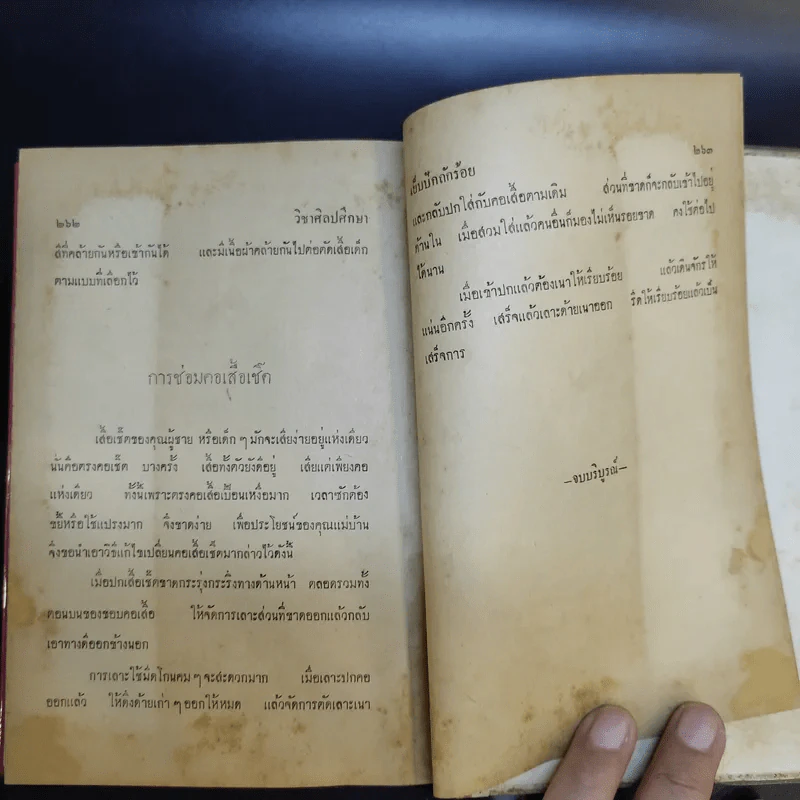 ๒๖๒ วิชาศิลปศึกษา
สีที่คล้ายกันหรือเข้ากันได้ และมีเนื้อผ้าคล้ายกันไปต่อตัดเสื้อเด็ก
ตามแบบที่เลือกไว้
การซ่อมคอเสื้อเชิ้ต
เสื้อเชิ้ตของคุณผู้ชาย หรือเด็ก ๆ มักจะเสียง่ายอยู่แห่งเดียว
นั่นคือตรงคอเชิ้ต บางครั้ง เสื้อทั้งตัวยังดีอยู่ เสียแต่เพียงคอ
แห่งเดียว ทั้งนี้เพราะตรงคอเสื้อเปื้อนเหงื่อมาก เวลาซักต้อง
ขยี้หรือใช้แปรงมาก จึงขาดง่าย เพื่อประโยชน์ของคุณแม่บ้าน
จึงขอนำเอาวิธีแก้ไขเปลี่ยนคอเสื้อเชิ้ตมากล่าวไว้ดังนี้
เมื่อปกเสื้อเชิ้ตขาดกระรุ่งกระริ่งทางด้านหน้า ตลอดรวมทั้ง
ตอนบนของขอบคอเสื้อ ให้จัดการเลาะส่วนที่ขาดออกแล้วกลับ
เอาทางดีออกข้างนอก
การเลาะใช้มีดโกนคม ๆ จะสะดวกมาก เมื่อเลาะปกคอ
ออกแล้ว ให้ดึงด้ายเก่า ๆ ออกให้หมด แล้วจัดการตัดเลาะเนา
เย็บปักถักร้อย ๒๖๓
และกลับปกใส่กับคอเสื้อตามเดิม ส่วนที่ขาดก็จะกลับเข้าไปอยู่
ด้านใน เมื่อสวมใส่แล้วคนอื่นก็มองไม่เห็นรอยขาด คงใช้ต่อไป
ได้นาน
เมื่อเข้าปกแล้วต้องเนาให้เรียบร้อย แล้วเดินจักรให้
แน่นอีกครั้ง เสร็จแล้วเลาะด้ายเนาออก รีดให้เรียบร้อยแล้วเป็น
เสร็จการ
—จบบริบูรณ์—